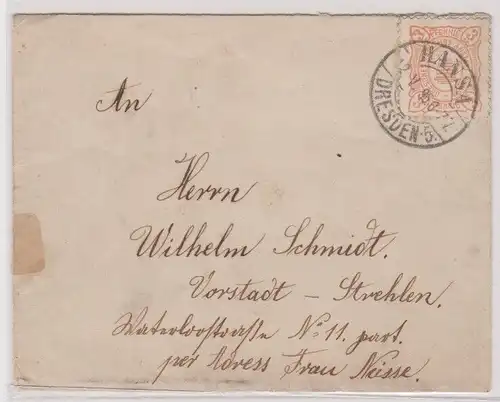 HANSA
DRESDEN·5.
An
Herrn
Wilhelm Schmidt.
Vorstadt – Strehlen.
Waterloostrasse No 11. part.
per Adress Frau Neisse.